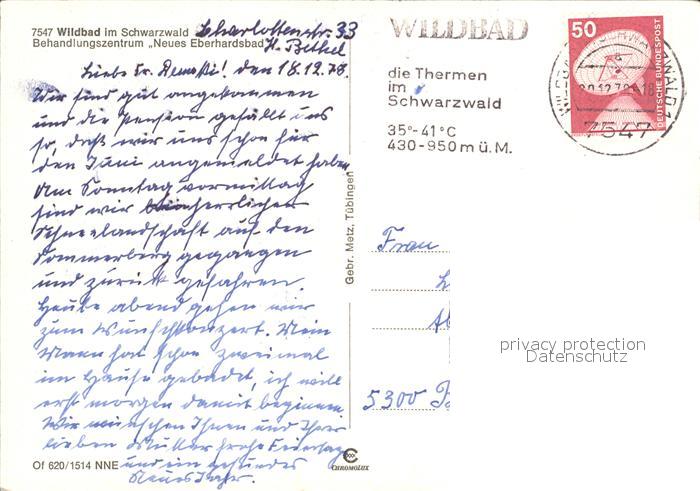 7547 Wildbad im Schwarzwald
Behandlungszentrum „Neues Eberhardsbad"
Charlottenstr. 33
H. Bethel
Liebe Fr. Demski! den 18.12.78.
Wir sind gut angekommen
und die Pension gefällt uns
so, daß wir uns schon für
den Juni angemeldet haben
Am Sonntag vormittag
sind wir bei herrlicher
Schneelandschaft auf den
Sommerberg gegangen
und zurück gefahren.
Heute abend gehen wir
zum Wunschkonzert. Mein
Mann hat schon zweimal
im Hause gebadet, ich will
erst morgen damit beginnen.
Wir wünschen Ihnen und Ihrer
lieben Mutter frohe Feiertage
und ein gesundes
Neues Jahr.
Of 620/1514 NNE
Gebr. Metz, Tübingen
CHROMOLUX
WILDBAD
die Thermen
im
Schwarzwald
35°-41°C
430-950m ü.M.
50
DEUTSCHE BUNDESPOST
7547
Frau
5300 B
privacy protection
Datenschutz